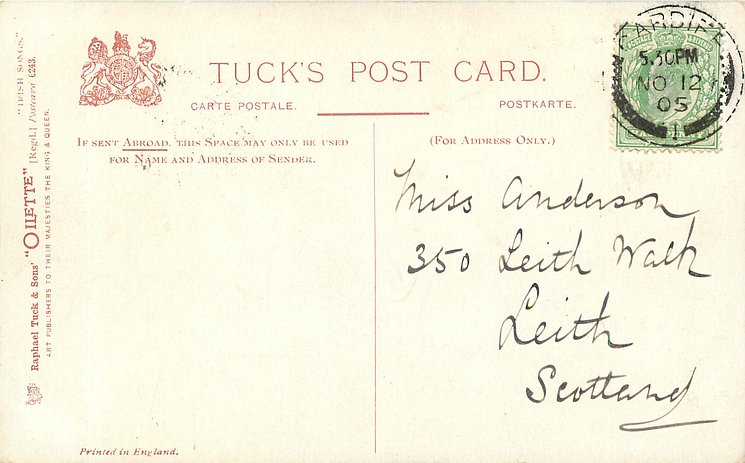 TUCK'S POST CARD.
CARTE POSTALE.
POSTKARTE.
IF SENT ABROAD, THIS SPACE MAY ONLY BE USED
FOR NAME AND ADDRESS OF SENDER.
(FOR ADDRESS ONLY.)
CARDIFF
5.30PM
NO 12
05
1
Miss Anderson
350 Leith Walk
Leith
Scotland
"IRISH SONGS."
Raphael Tuck & Sons' "OILETTE" [Regd.] Postcard 6243.
ART PUBLISHERS TO THEIR MAJESTIES THE KING & QUEEN.
Printed in England.